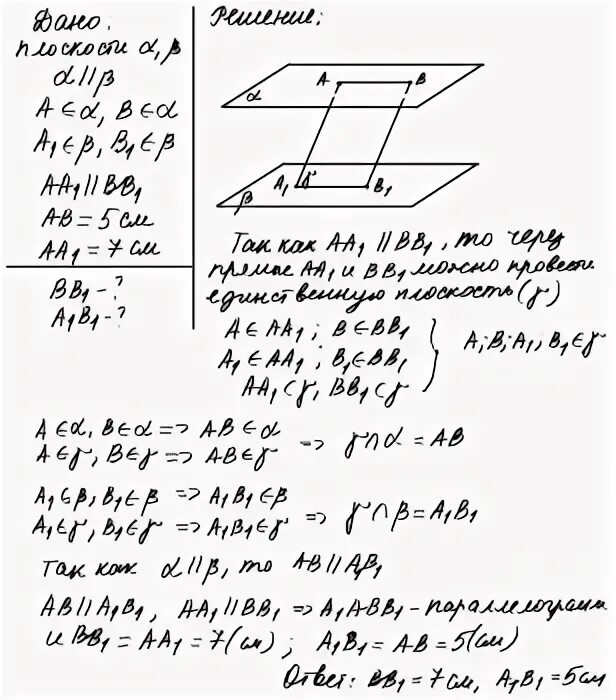 Дано:
плоскости α, β
α || β
A ∈ α, B ∈ α
A₁ ∈ β, B₁ ∈ β
AA₁ || BB₁
AB = 5 см
AA₁ = 7 см
BB₁ - ?
A₁B₁ - ?
Решение:
A B
α
A₁ γ B₁
β
Так как AA₁ || BB₁, то через
прямые AA₁ и BB₁ можно провести
единственную плоскость (γ)
A ∈ AA₁ ; B ∈ BB₁
A₁ ∈ AA₁ ; B₁ ∈ BB₁
AA₁ ⊂ γ, BB₁ ⊂ γ
A; B; A₁; B₁ ∈ γ
A ∈ α, B ∈ α => AB ∈ α
A ∈ γ, B ∈ γ => AB ∈ γ
=> γ ∩ α = AB
A₁ ∈ β, B₁ ∈ β => A₁B₁ ∈ β
A₁ ∈ γ, B₁ ∈ γ => A₁B₁ ∈ γ
=> γ ∩ β = A₁B₁
Так как α || β, то AB || A₁B₁
AB || A₁B₁, AA₁ || BB₁ => A₁ABB₁ - параллелограмм
и BB₁ = AA₁ = 7 (см) ; A₁B₁ = AB = 5 (см)
Ответ: BB₁ = 7 см, A₁B₁ = 5 см